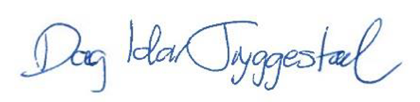 Dag Idar Tryggestad